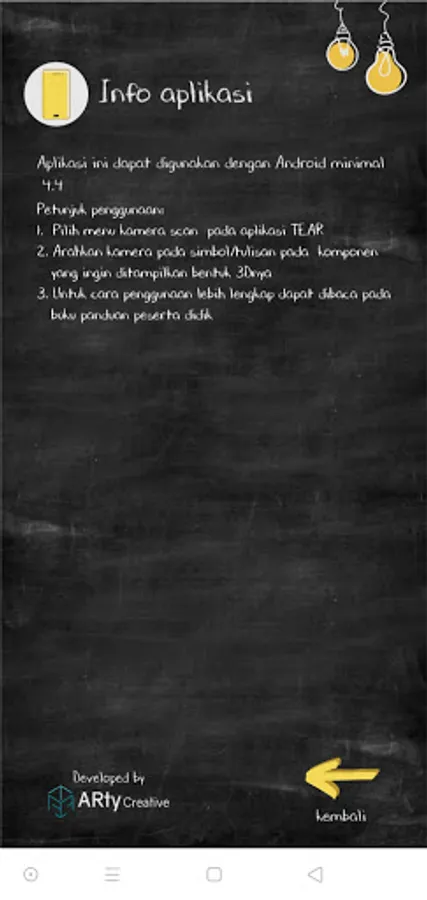 Info aplikasi
Aplikasi ini dapat digunakan dengan Android minimal
4.4
Petunjuk penggunaan:
1. Pilih menu kamera scan pada aplikasi TEAR
2. Arahkan kamera pada simbol/tulisan pada komponen
yang ingin ditampilkan bentuk 3Dnya
3. Untuk cara penggunaan lebih lengkap dapat dibaca pada
buku panduan peserta didik
Developed by
ARty Creative
kembali